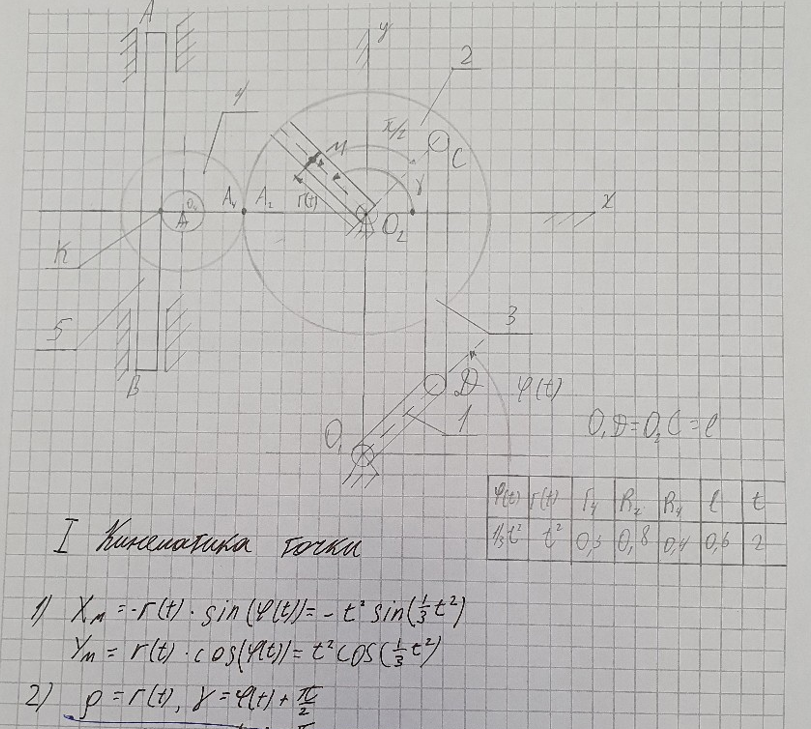 A
y
2
4
π/2
M
C
γ
r(t)
O₄
A₄ A₂
O₂
x
K
5
3
B
D
φ(t)
1
O₁
O₁D=O₂C=l
φ(t) r(t) r₄ R₂ R₄ l t
1/3t² t² 0,8 0,4 0,6 2
I Кинематика точки
1) Xₘ=-r(t)·sin(φ(t))=-t²sin(1/3t²)
Yₘ=r(t)·cos(φ(t))=t²cos(1/3t²)
2) ρ=r(t), γ=φ(t)+π/2